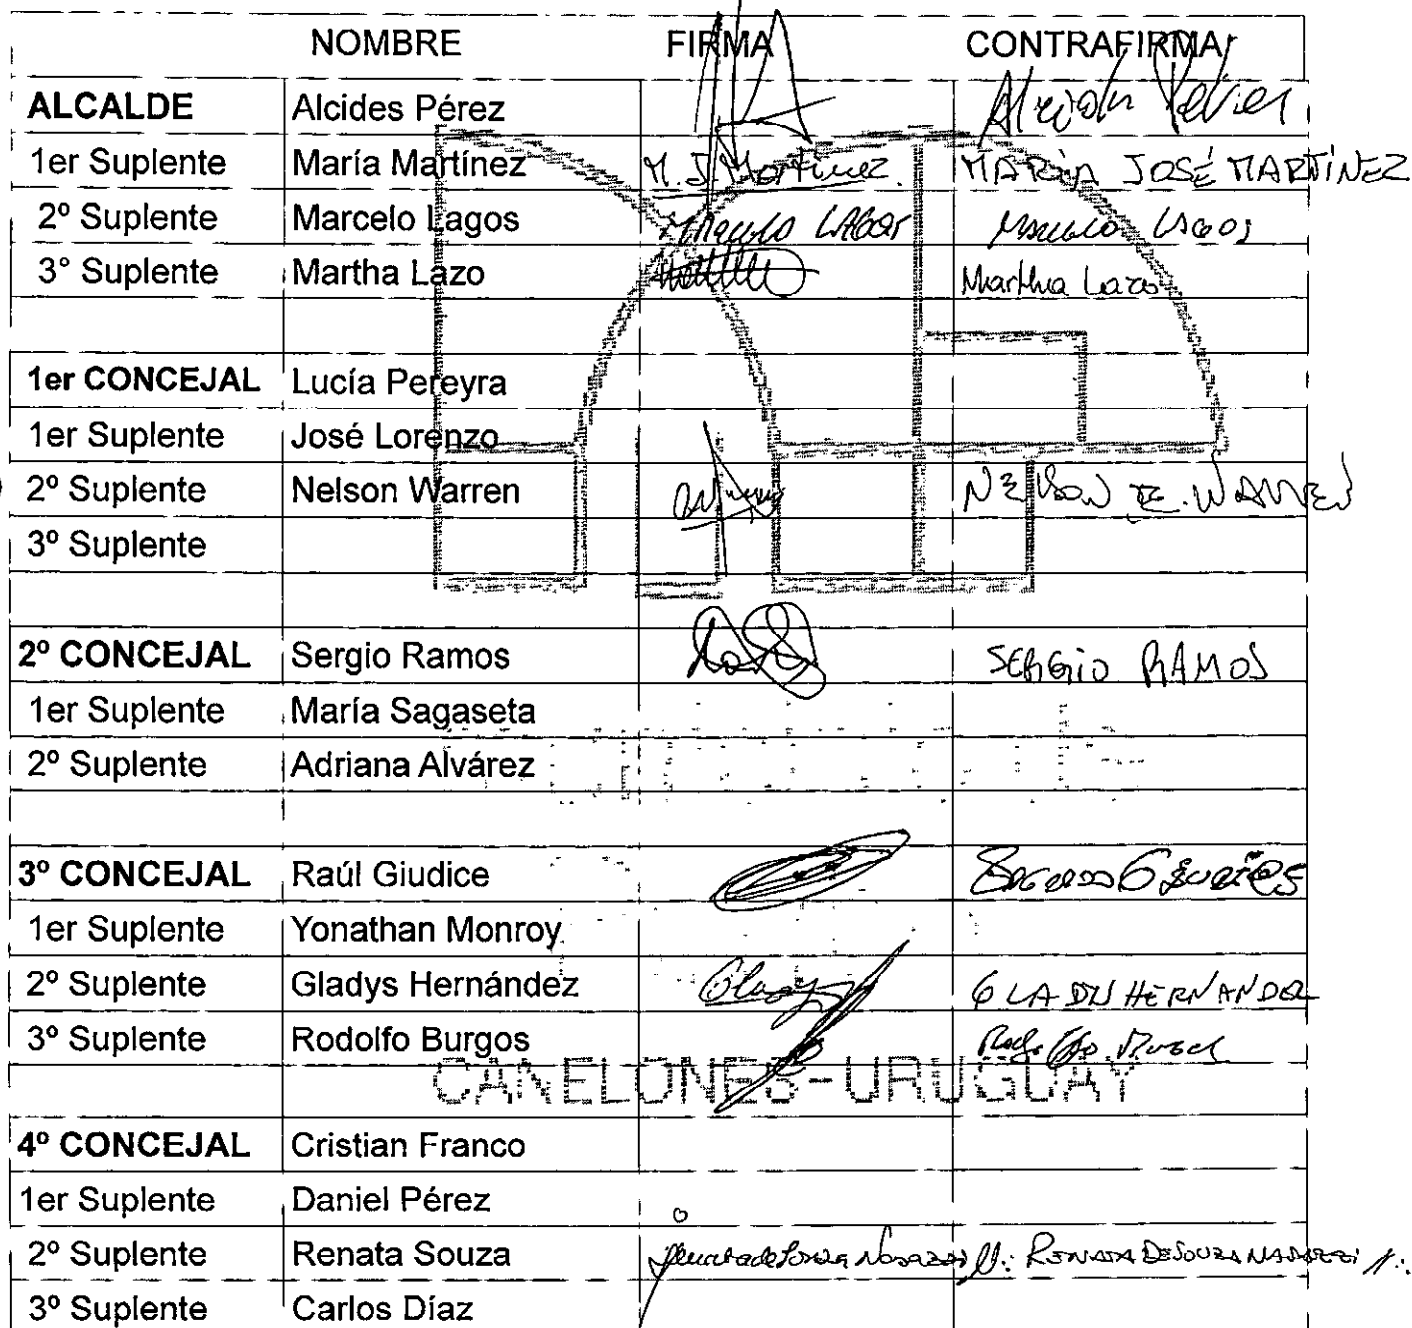 NOMBRE FIRMA CONTRAFIRMA
ALCALDE Alcides Pérez
1er Suplente María Martínez M. J. Martinez MARÍA JOSÉ MARTÍNEZ
2º Suplente Marcelo Lagos Marcelo LAGOS Marcelo Lagos
3° Suplente Martha Lazo Martha Lazo
1er CONCEJAL Lucía Pereyra
1er Suplente José Lorenzo
2º Suplente Nelson Warren NELSON E. WARREN
3º Suplente
2º CONCEJAL Sergio Ramos SERGIO RAMOS
1er Suplente María Sagaseta
2º Suplente Adriana Alvárez
3º CONCEJAL Raúl Giudice
1er Suplente Yonathan Monroy
2º Suplente Gladys Hernández Gladys GLADYS HERNANDEZ
3º Suplente Rodolfo Burgos
CANELONES-URUGUAY
4º CONCEJAL Cristian Franco
1er Suplente Daniel Pérez
2º Suplente Renata Souza RENATA DE SOUZA
3º Suplente Carlos Díaz